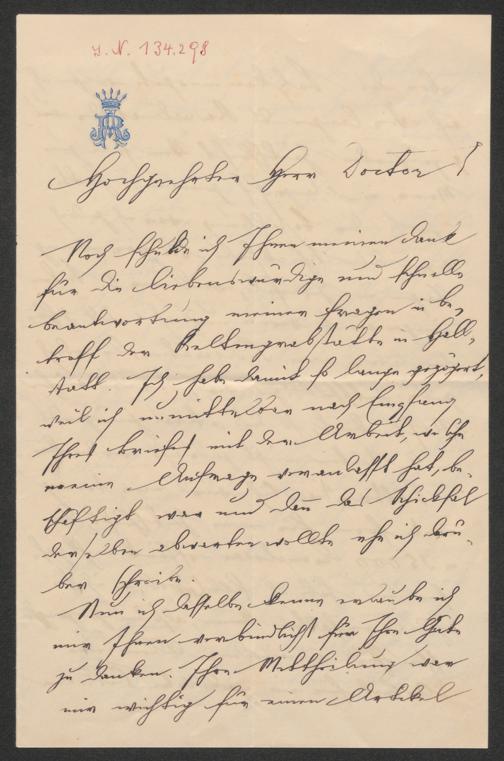 I. N. 134.298
Hochgeehrter Herr Doctor!
Noch schulde ich Ihnen meinen Dank
für die liebenswürdige und schnelle
beantwortung meiner Fragen in be-
treff der Keltengrabstätte in Hall-
statt. Ich habe damit so lange gezögert,
weil ich unmittelbar nach Empfang
Ihres Briefes mit der Arbeit, welche
meine Anfrage veranlaßt hat, be-
schäftigt war und dann das Schicksal
derselben abwarten wollte ehe ich darü-
ber schreibe.
Nun ich dasselbe kenne erlaube ich
mir Ihnen verbindlichst für Ihre Güte
zu danken. Ihre Mittheilung war
mir wichtig für einen Artikel